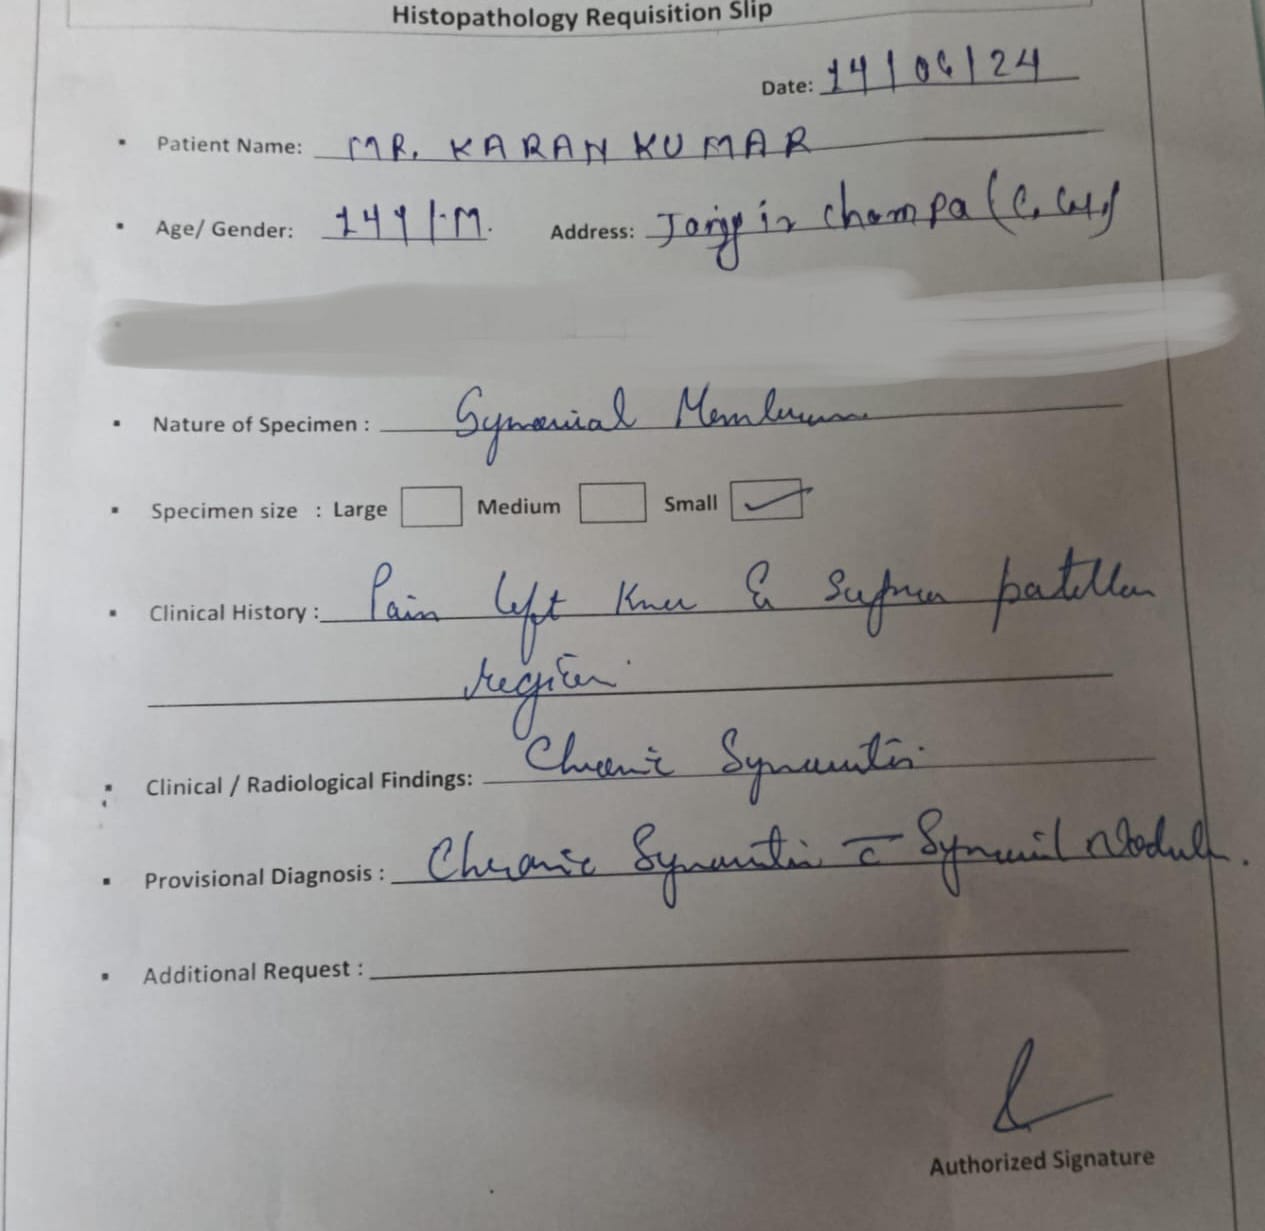 Histopathology Requisition Slip
Date: 14/06/24
Patient Name: MR. KARAN KUMAR
Age/ Gender: 14Y/M. Address: Jangir champa (C.G.)
Nature of Specimen : Synovial Membrane
Specimen size : Large Medium Small
Clinical History : Pain left Knee & Supra patellar
region
Clinical / Radiological Findings: Chronic Synovitis
Provisional Diagnosis : Chronic Synovitis c̄ Synovial Nodule.
Additional Request :
Authorized Signature